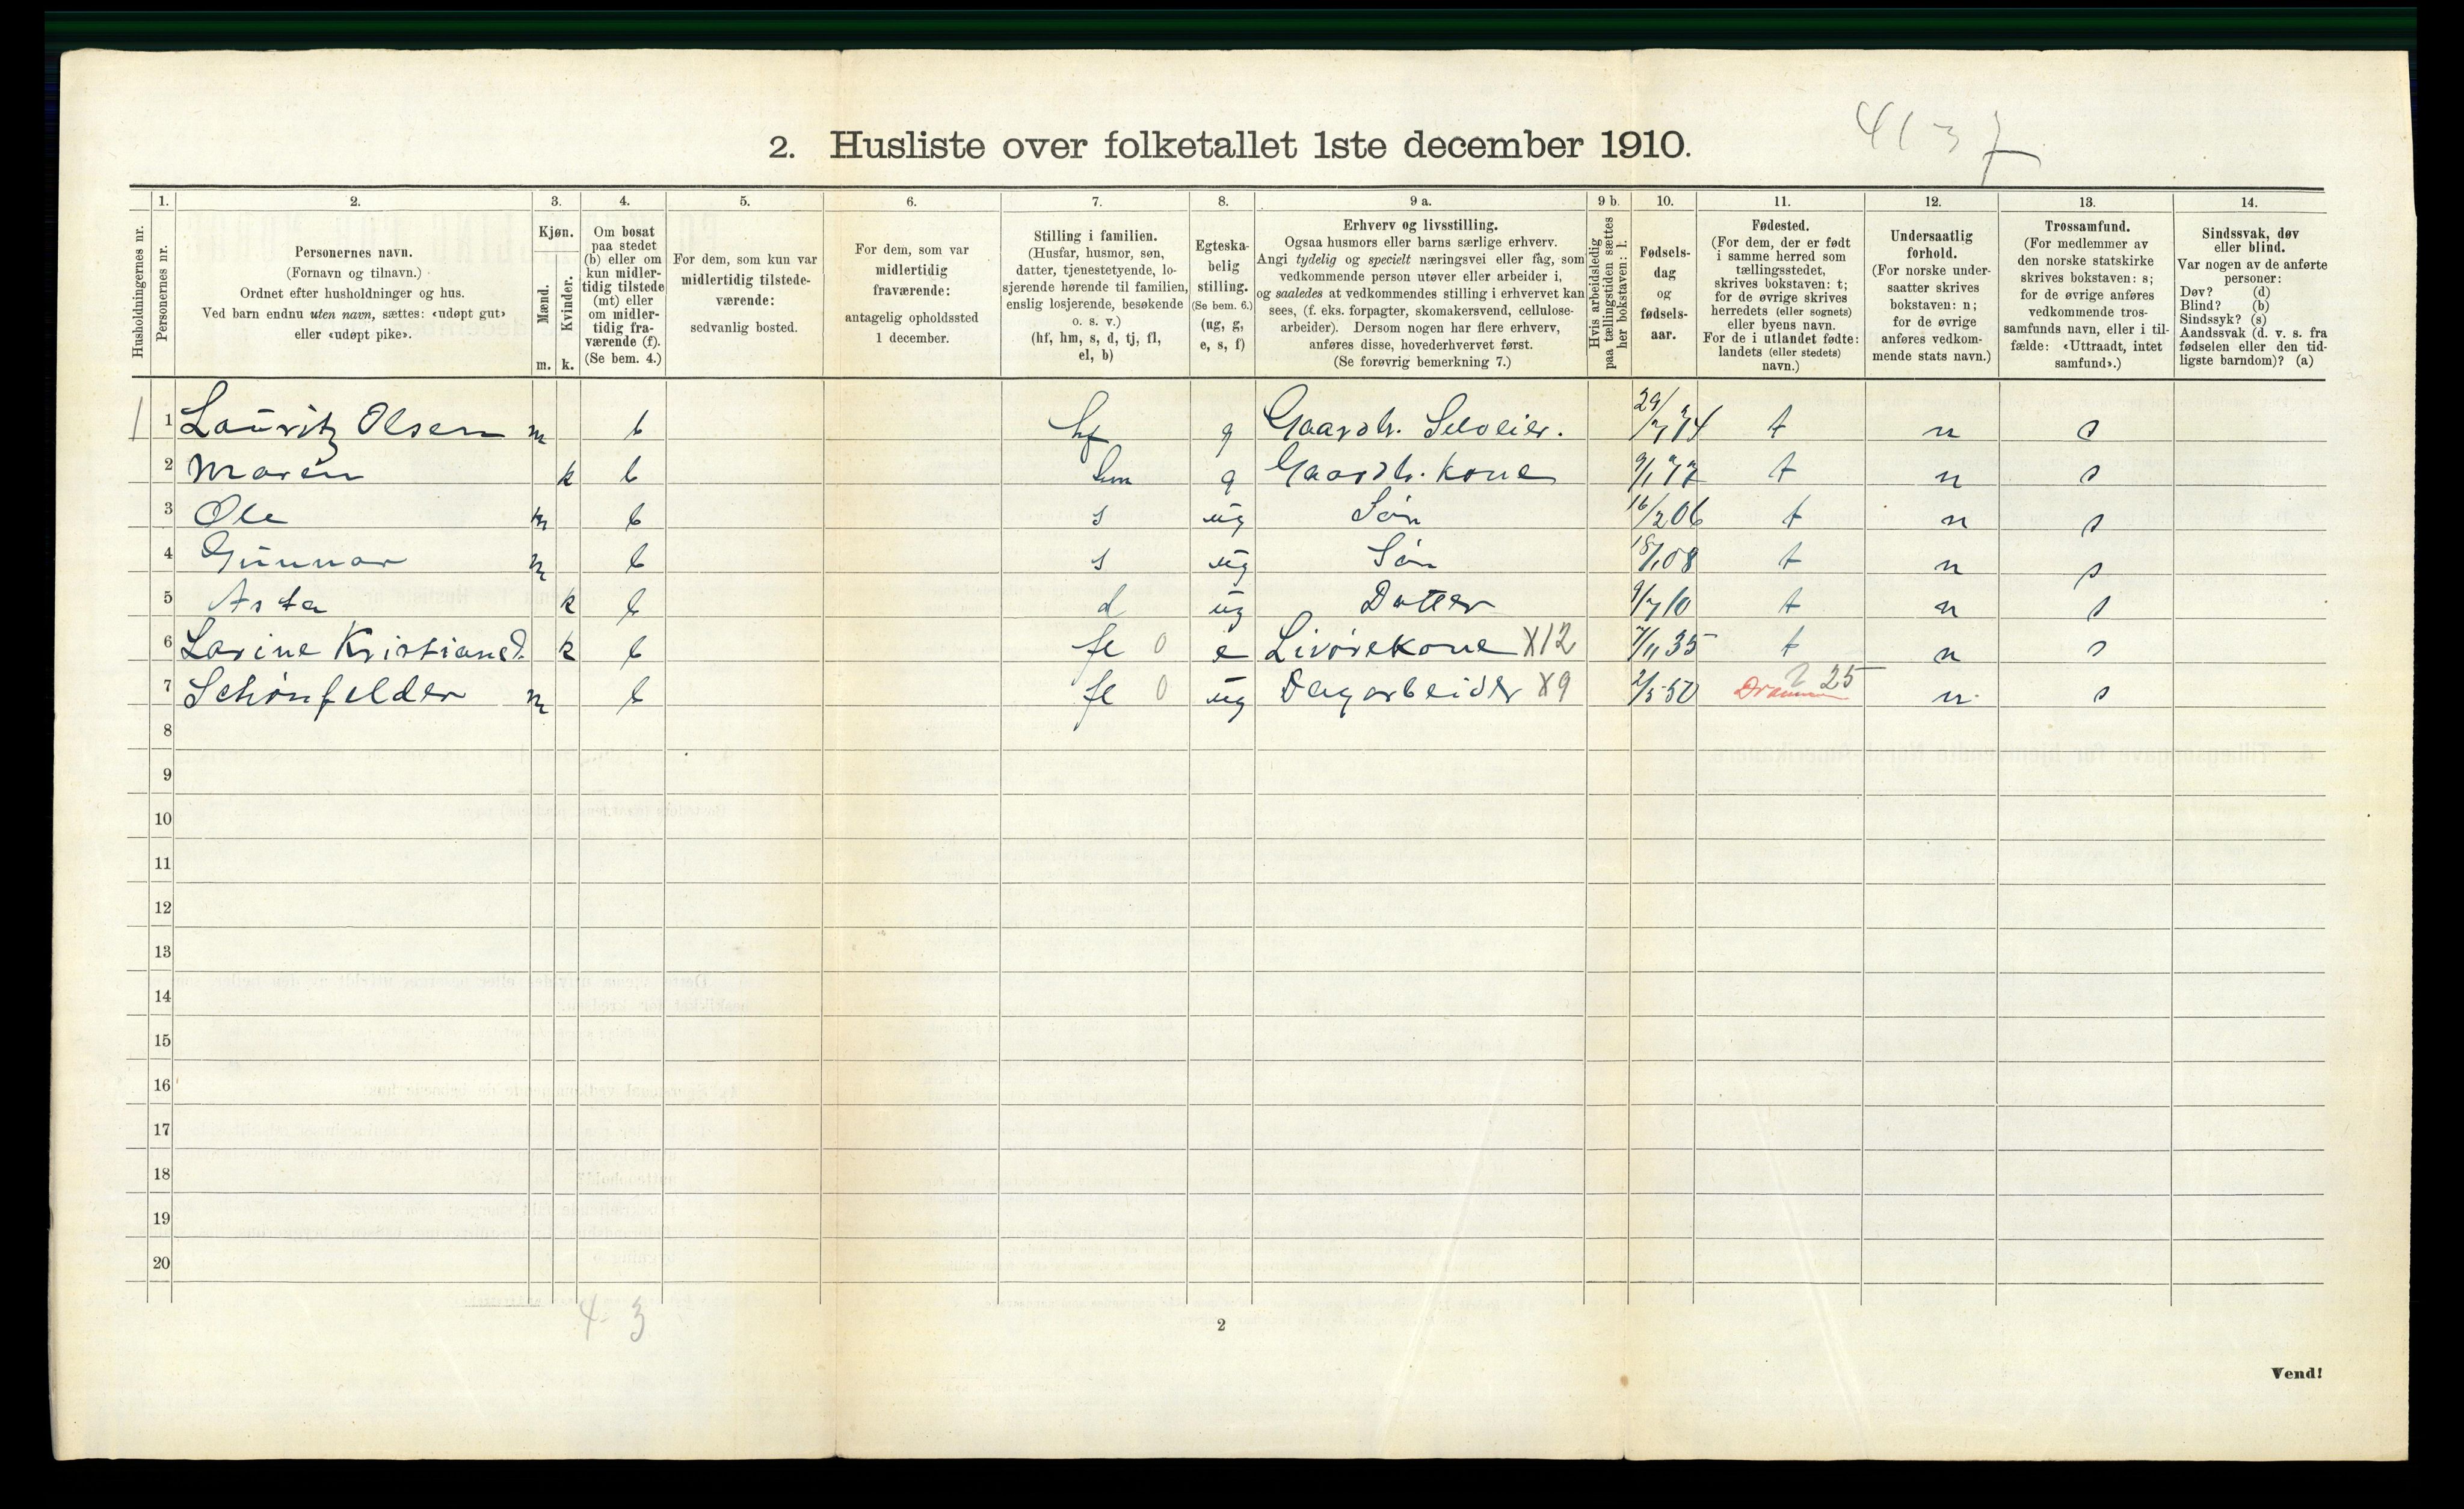 2. Husliste over folketallet 1ste december 1910.
4137
Husholdningernes nr.
1.
Personernes nr.
2.
Personernes navn.
(Fornavn og tilnavn.)
Ordnet efter husholdninger og hus.
Ved barn endnu uten navn, sættes: «udøpt gut»
eller «udøpt pike».
3.
Kjøn.
Mænd.
m.
Kvinder.
k.
4.
Om bosat
paa stedet
(b) eller om
kun midler-
tidig tilstede
(mt) eller
om midler-
tidig fra-
værende (f).
(Se bem. 4.)
5.
For dem, som kun var
midlertidig tilstede-
værende:
sedvanlig bosted.
6.
For dem, som var
midlertidig
fraværende:
antagelig opholdssted
1 december.
7.
Stilling i familien.
(Husfar, husmor, søn,
datter, tjenestetyende, lo-
sjerende hørende til familien,
enslig losjerende, besøkende
o. s. v.)
(hf, hm, s, d, tj, fl,
el, b)
8.
Egteska-
belig
stilling.
(Se bem. 6.)
(ug, g,
e, s, f)
9 a.
Erhverv og livsstilling.
Ogsaa husmors eller barns særlige erhverv.
Angi tydelig og specielt næringsvei eller fag, som
vedkommende person utøver eller arbeider i,
og saaledes at vedkommendes stilling i erhvervet kan
sees, (f. eks. forpagter, skomakersvend, cellulose-
arbeider). Dersom nogen har flere erhverv,
anføres disse, hovederhvervet først.
(Se forøvrig bemerkning 7.)
9 b.
Hvis arbeidsledig
paa tællingstiden sættes
her bokstaven: l.
10.
Fødsels-
dag
og
fødsels-
aar.
11.
Fødested.
(For dem, der er født
i samme herred som
tællingsstedet,
skrives bokstaven: t;
for de øvrige skrives
herredets (eller sognets)
eller byens navn.
For de i utlandet fødte:
landets (eller stedets)
navn.)
12.
Undersaatlig
forhold.
(For norske under-
saatter skrives
bokstaven: n;
for de øvrige
anføres vedkom-
mende stats navn.)
13.
Trossamfund.
(For medlemmer av
den norske statskirke
skrives bokstaven: s;
for de øvrige anføres
vedkommende tros-
samfunds navn, eller i til-
fælde: «Uttraadt, intet
samfund».)
14.
Sindssvak, døv
eller blind.
Var nogen av de anførte
personer:
Døv? (d)
Blind? (b)
Sindssyk? (s)
Aandssvak (d. v. s. fra
fødselen eller den tid-
ligste barndom)? (a)
1 1 Lauritz Olsen m b hf g Gaardb. Selveier. t n s
2 Maren k b hm g Gaardb. kone t n s
3 Ole m b s ug Søn 16/2 06 t n s
4 Gunnar m b s ug Søn 18/1 08 t n s
5 Asta k b d ug Datter 9/7 10 t n s
6 Larine Kristiansd. k b fl 0 e Livørekone X12 7/11 35 t n s
7 Schönfelder m b fl 0 ug Dagarbeider X9 2/5 50 Drammen 25 n s
8
9
10
11
12
13
14
15
16
17
18
19
20
4 - 3
2
Vend!